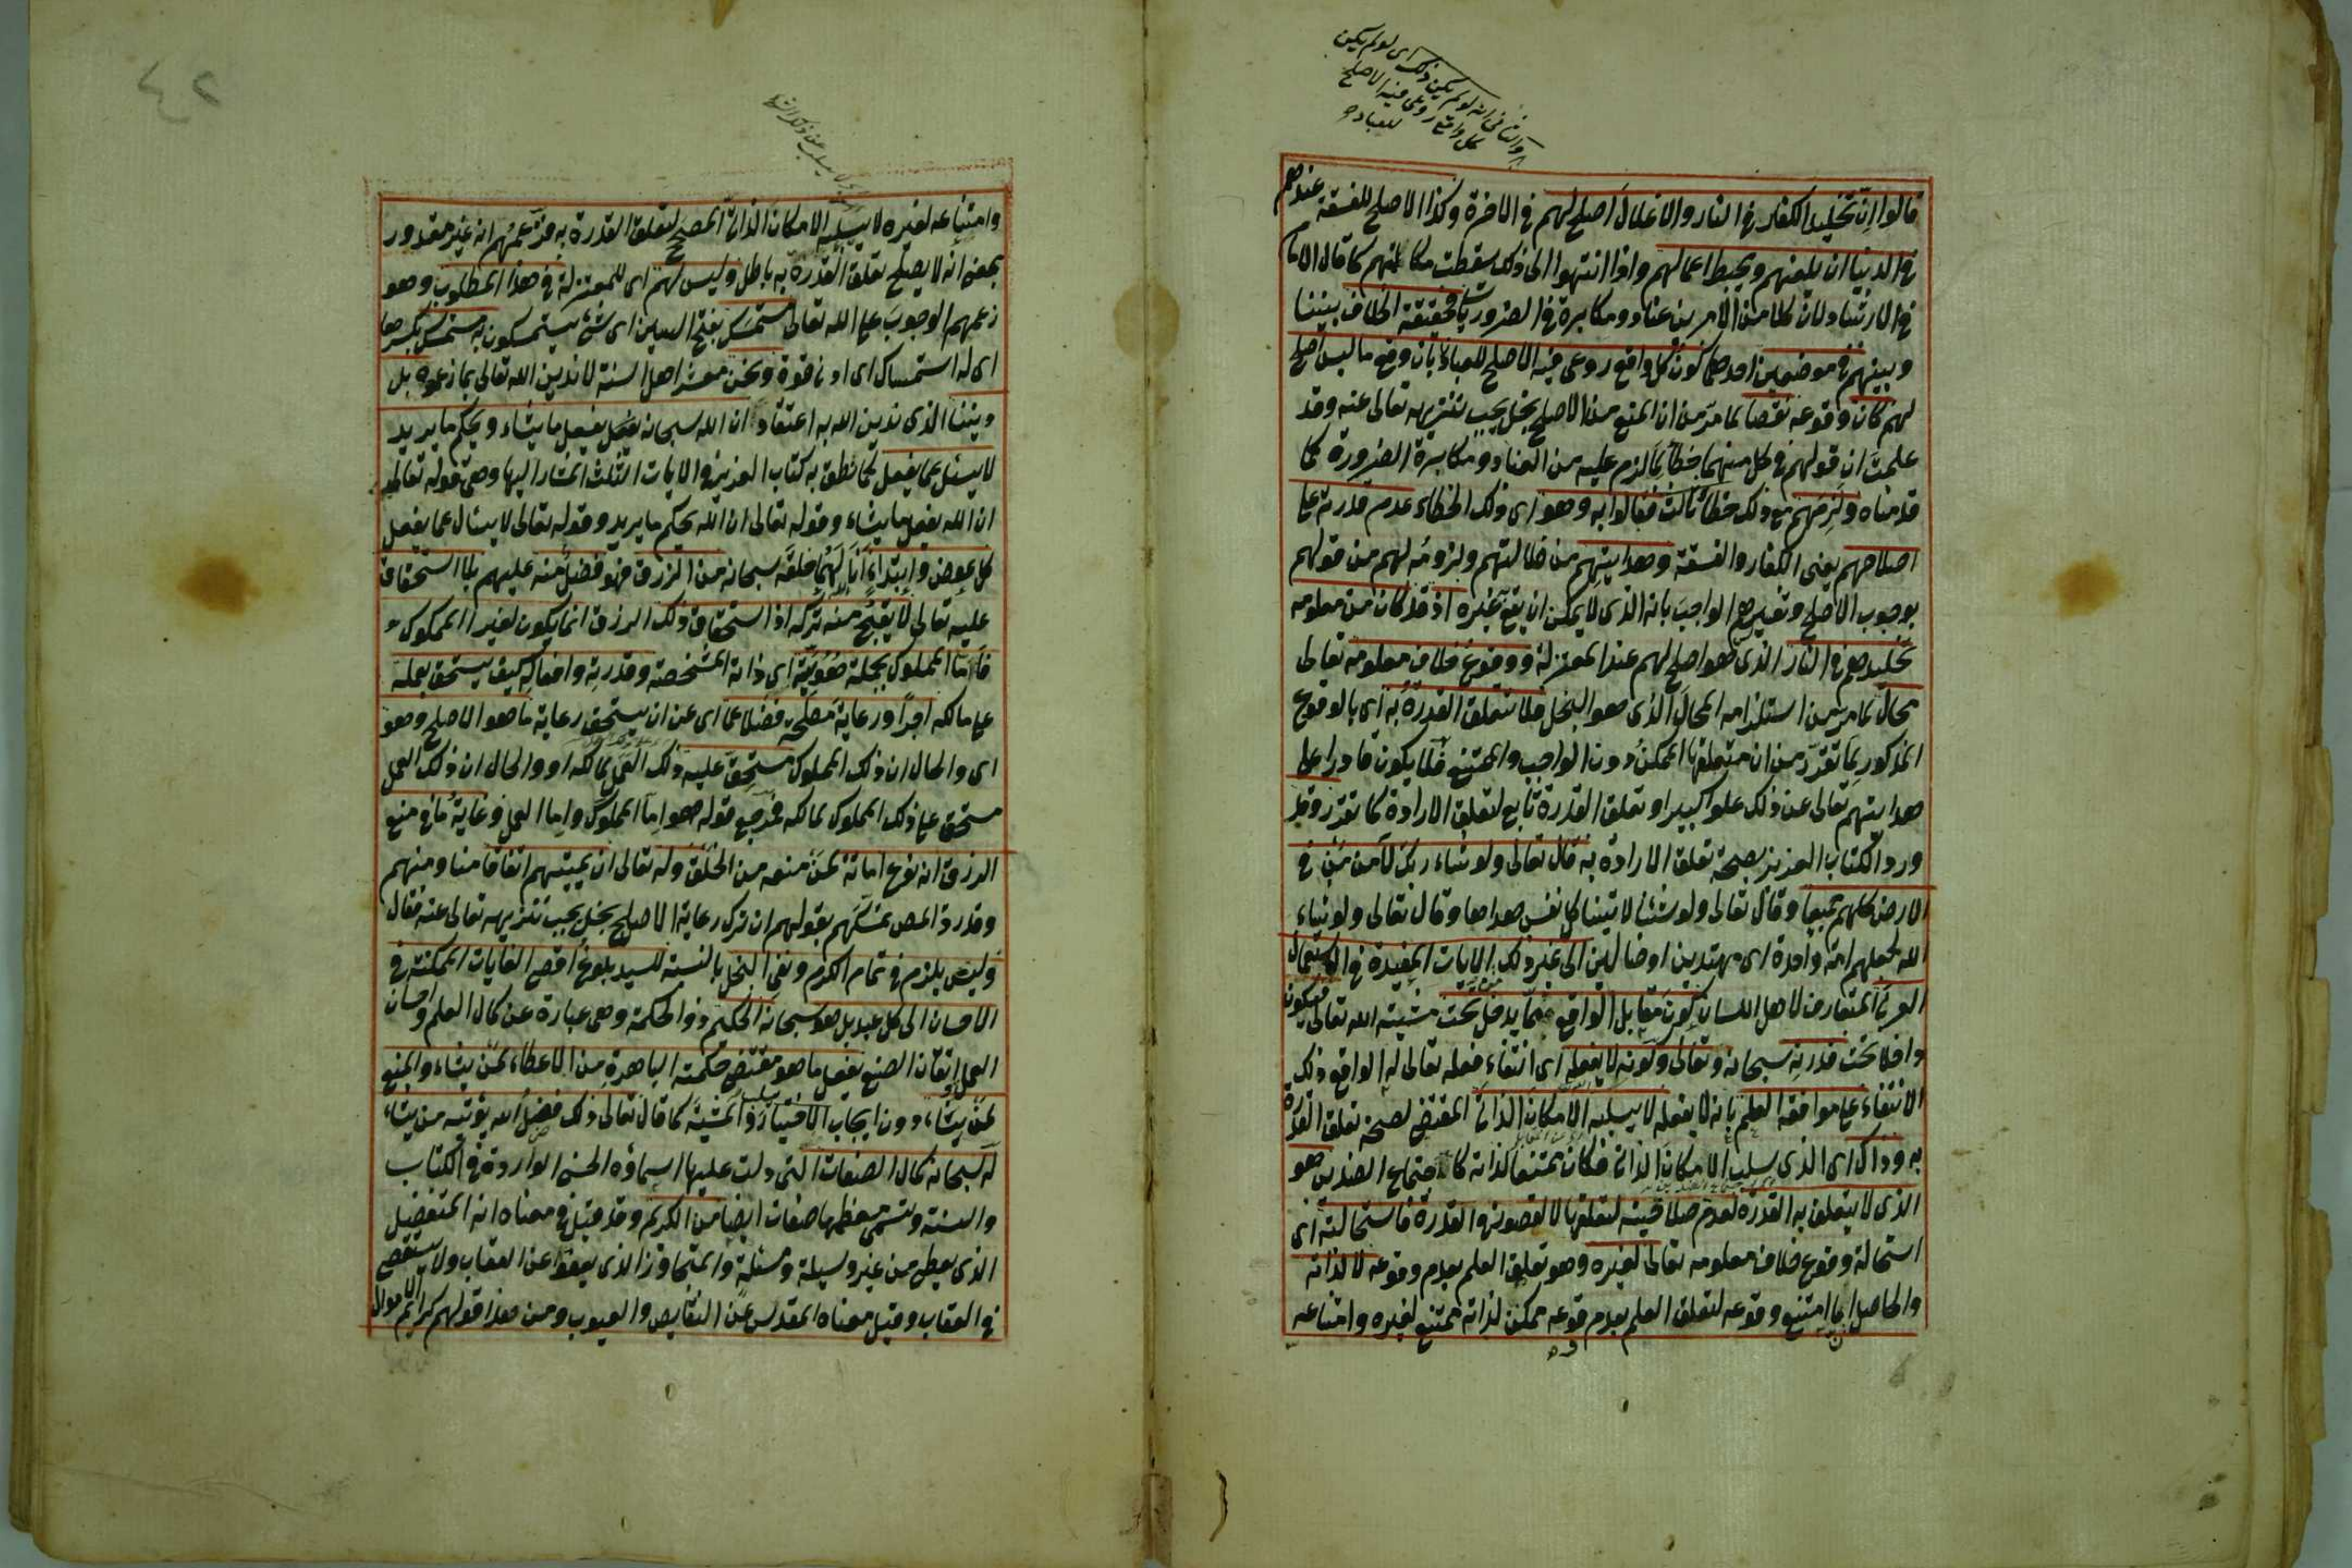 والثانى انه لو لم يكن ذلك اى لو لم يكن
كل واقع روعى فيه الاصلح
للعباد
قالوا ان تخليد الكفار فى النار والاغلال اصلح لهم فى الاخرة وكذا الاصلح للفسقة عندهم
فى الدنيا ان يلعنهم ويحبط اعمالهم واذا انتهوا الى ذلك سقطت مكالمتهم كما قال الامام
فى الارشاد لان كلا من الامرين عناد ومكابرة فى الضروريات فحقيقة الخلاف بيننا
وبينهم فى موضعين احدهما كون كل واقع روعى فيه الاصلح للعباد بان وقع ما ليس اصلح
لهم كان وقوعه نقصا لما مر من ان المنع من الاصلح بخل يجب تنزيهه تعالى عنه وقد
علمت ان قولهم فى كل منهما خطأ لما لزم عليه من العناد ومكابرة الضرورة كما
قدمناه ولزمهم مع ذلك خطأ ثالث فقالوا به وهو اى ذلك الخطاء عدم قدرته على
اصلاحهم يعنى الكفار والفسقة وهدايتهم من ضلالتهم ولزومه لهم من قولهم
بوجوب الاصلح وتفسيرهم الواجب بانه الذى لا يمكن ان يقع غيره اذ قد كان من معلومه
تخليدهم فى النار الذى هو اصلح لهم عند المعتزلة ووقوع خلاف معلومه تعالى
محال لما مر من استلزامه المحال الذى هو البخل فلا تتعلق القدرة به اى بالوقوع
المذكور لما تقرر من ان متعلقها الممكن دون الواجب والممتنع فلا يكون قادرا على
هدايتهم تعالى عن ذلك علوا كبيرا وتعلق القدرة تابع لتعلق الارادة كما تقرر وقد
ورد الكتاب العزيز بصحة تعلق الارادة به قال تعالى ولو شاء ربك لآمن من فى
الارض كلهم جميعا وقال تعالى ولو شئنا لاتينا كل نفس هداها وقال تعالى ولو شاء
الله لجعلهم امة واحدة اى مهتدين او ضالين الى غير ذلك من الايات المفيدة فى الاستعمال
العربى المتعارف لاهل اللسان كون مقابل الواقع مما يدخل تحت مشيته الله تعالى فيكون
داخلا تحت قدرته سبحانه وتعالى وكونه لا يفعله اى انتفاء فعله تعالى له الواقع ذلك
الانتفاء على موافقه العلم بانه لا يفعله لا يسلبه الامكان الذاتى المقتضى لصحة تعلق القدرة
به وذاك اى الذى سلب الامكان الذاتى فكان ممتنعا لذاته كاجتماع الضدين هو
الذى لا يتعلق به القدرة لعدم صلاحيته لتعلقها لا لقصور فى القدرة فاستحالته اى
استحالة وقوع خلاف معلومه تعالى لغيره وهو تعلق العلم بعدم وقوعه لا لذاته
والحاصل ان ما امتنع وقوعه لتعلق العلم بعدم وقوعه ممكن لذاته ممتنع لغيره وامتناعه
وامتناعه لغيره لا يسلبه الامكان الذاتى المصحح لتعلق القدرة به فزعمهم انه غير مقدور
بمعنى انه لا يصلح تعلق القدرة به باطل وليس لهم اى للمعتزلة فى هذا المطلوب وهو
زعمهم الوجوب على الله تعالى مستمسك بفتح السين اى شئ يستمسكون به مستمسك بكسرها
اى له استمساك اى ادنى قوة ونحن معشر اهل السنة لا ندين الله تعالى بما زعموه بل
ديننا الذى ندين الله به اعتقاد ان الله سبحانه يفعل ما يشاء ويحكم ما يريد
لا يسئل عما يفعل كما نطق به كتاب العزيز والايات الثلث المشار اليها وهى قوله تعالى
ان الله يفعل ما يشاء وقوله تعالى ان الله يحكم ما يريد وقوله تعالى لا يسئال عما يفعل
خلقه سبحانه من الرزق فهو فضل منه عليهم بلا استحقاق
عليه تعالى لا يقبح منه تركه اذ استحقاق ذلك الرزق انما يكون لغير المملوك
فاما المملوك بجملة هويته اى ذاته المشخصة وقدرته وافعاله كيف يستحق بعمله
على مالكه اجرا ورعاية مصلحة فضلا عما اى عن ان يستحق رعاية ما هو الاصلح وهو
اى والحال ان ذلك المملوك مستحق عليه ذلك العمل لمالكه او والحال ان ذلك العمل
مستحق على ذلك المملوك لمالكه فمرجع قوله هو اما المملوك واما العمل وغاية ما فى منع
الرزق انه نوع اماتة لمن منعه من الخلق وله تعالى ان يميتهم اتفاقا منا ومنهم
وقد رد المص تمسكهم بقولهم ان ترك رعاية الاصلح بخل يجب تنزيهه تعالى عنه فقال
وليس يلزم فى تمام الكرم ونفى البخل بالنسبة للسيد بلوغ اقصى الغايات الممكنة فى
الاحسان الى كل عبد بل هو سبحانه الحكيم ذو الحكمة وهى عبارة عن كمال العلم واحسان
العمل واتقان الصنع يفعل ما هو مقتضى حكمته الباهرة من الاعطاء لمن يشاء والمنع
لمن يشاء دون ايجاب يسلب الاختيار والمشية كما قال تعالى ذلك فضل الله يؤتيه من يشاء
له سبحانه كمال الصفات التى دلت عليها اسماؤه الحسنى الواردة فى الكتاب
والسنة وتسمى معظمها صفات ايضا من الكريم وقد قيل فى معناه انه المتفضل
الذى يعطى من غير وسيلة ومسئلة والمتجاوز الذى يعفو عن العقاب ولا يستقصى
فى العقاب وقيل معناه المقدس عن النقايص والعيوب ومن هذا قولهم كرايم الاموال